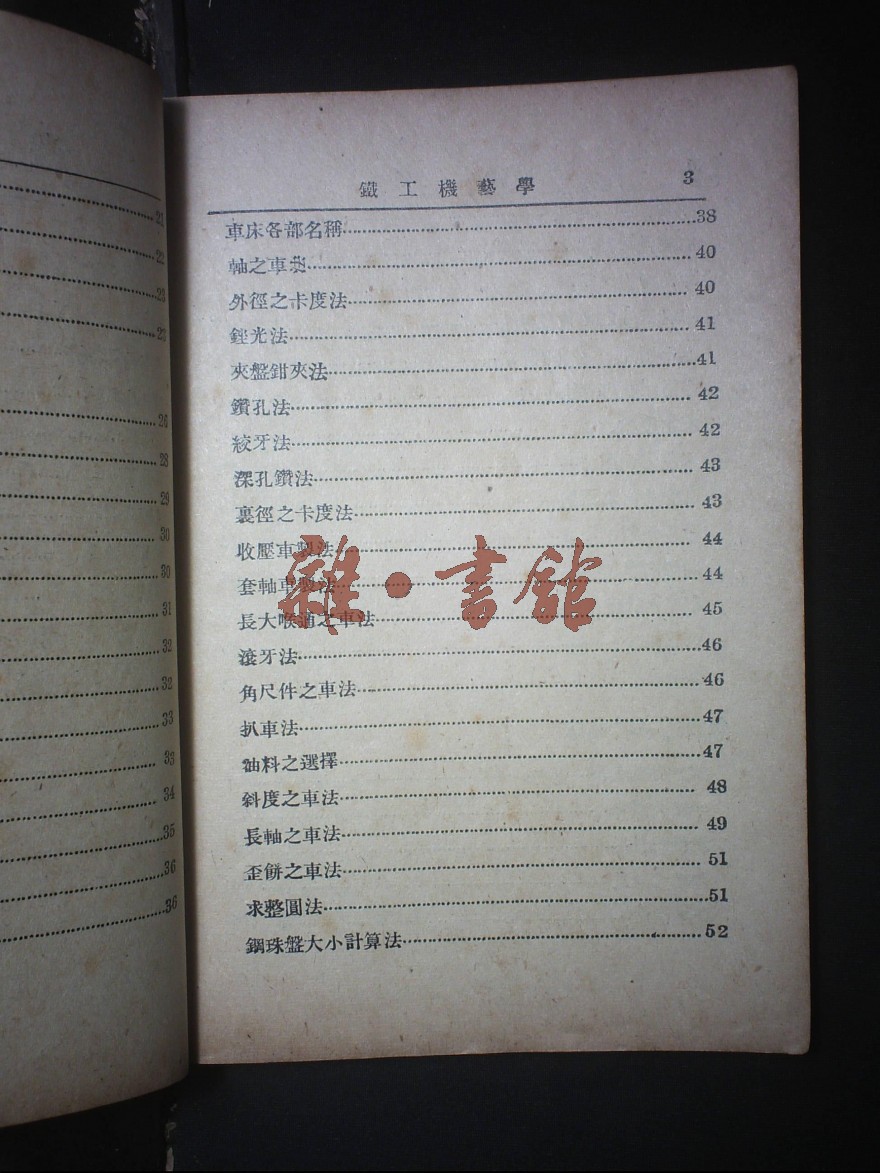 21
22
23
23
26
28
29
30
30
31
32
32
33
33
34
35
36
36
鐵工機藝學 3
車床各部名稱……38
軸之車法……40
外徑之卡度法……40
銼光法……41
夾盤鉗夾法……41
鑽孔法……42
絞牙法……42
深孔鑽法……43
裏徑之卡度法……43
收壓車製法……44
套軸車製法……44
長大喉通之車法……45
滾牙法……46
角尺件之車法……46
扒車法……47
油料之選擇……47
斜度之車法……48
長軸之車法……49
歪餅之車法……51
求整圓法……51
鋼珠盤大小計算法……52
雜·書館